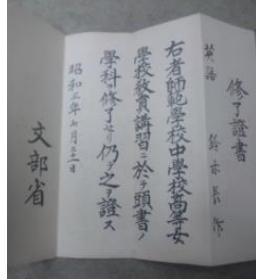 修了證書
英語 鈴木長作
右者師範學校中學校高等女
學校教員講習ニ於テ頭書ノ
學科ヲ修了セリ仍テ之ヲ證ス
昭和三年八月二十一日
文部省